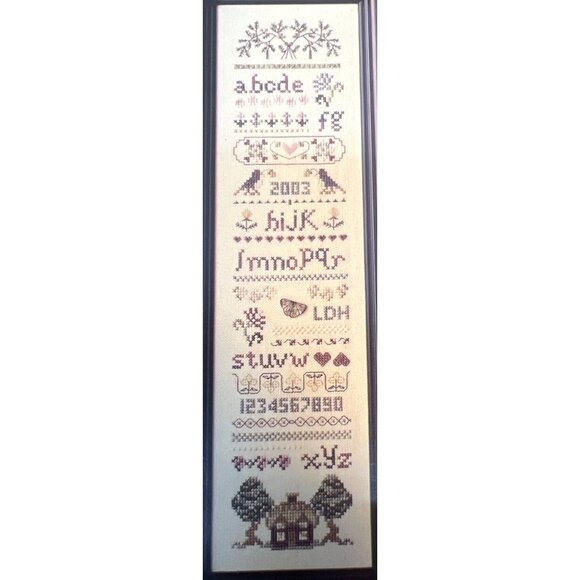 abcde
fg
2003
hijK
lmnopqr
LDH
stuvw
1234567890
xyz